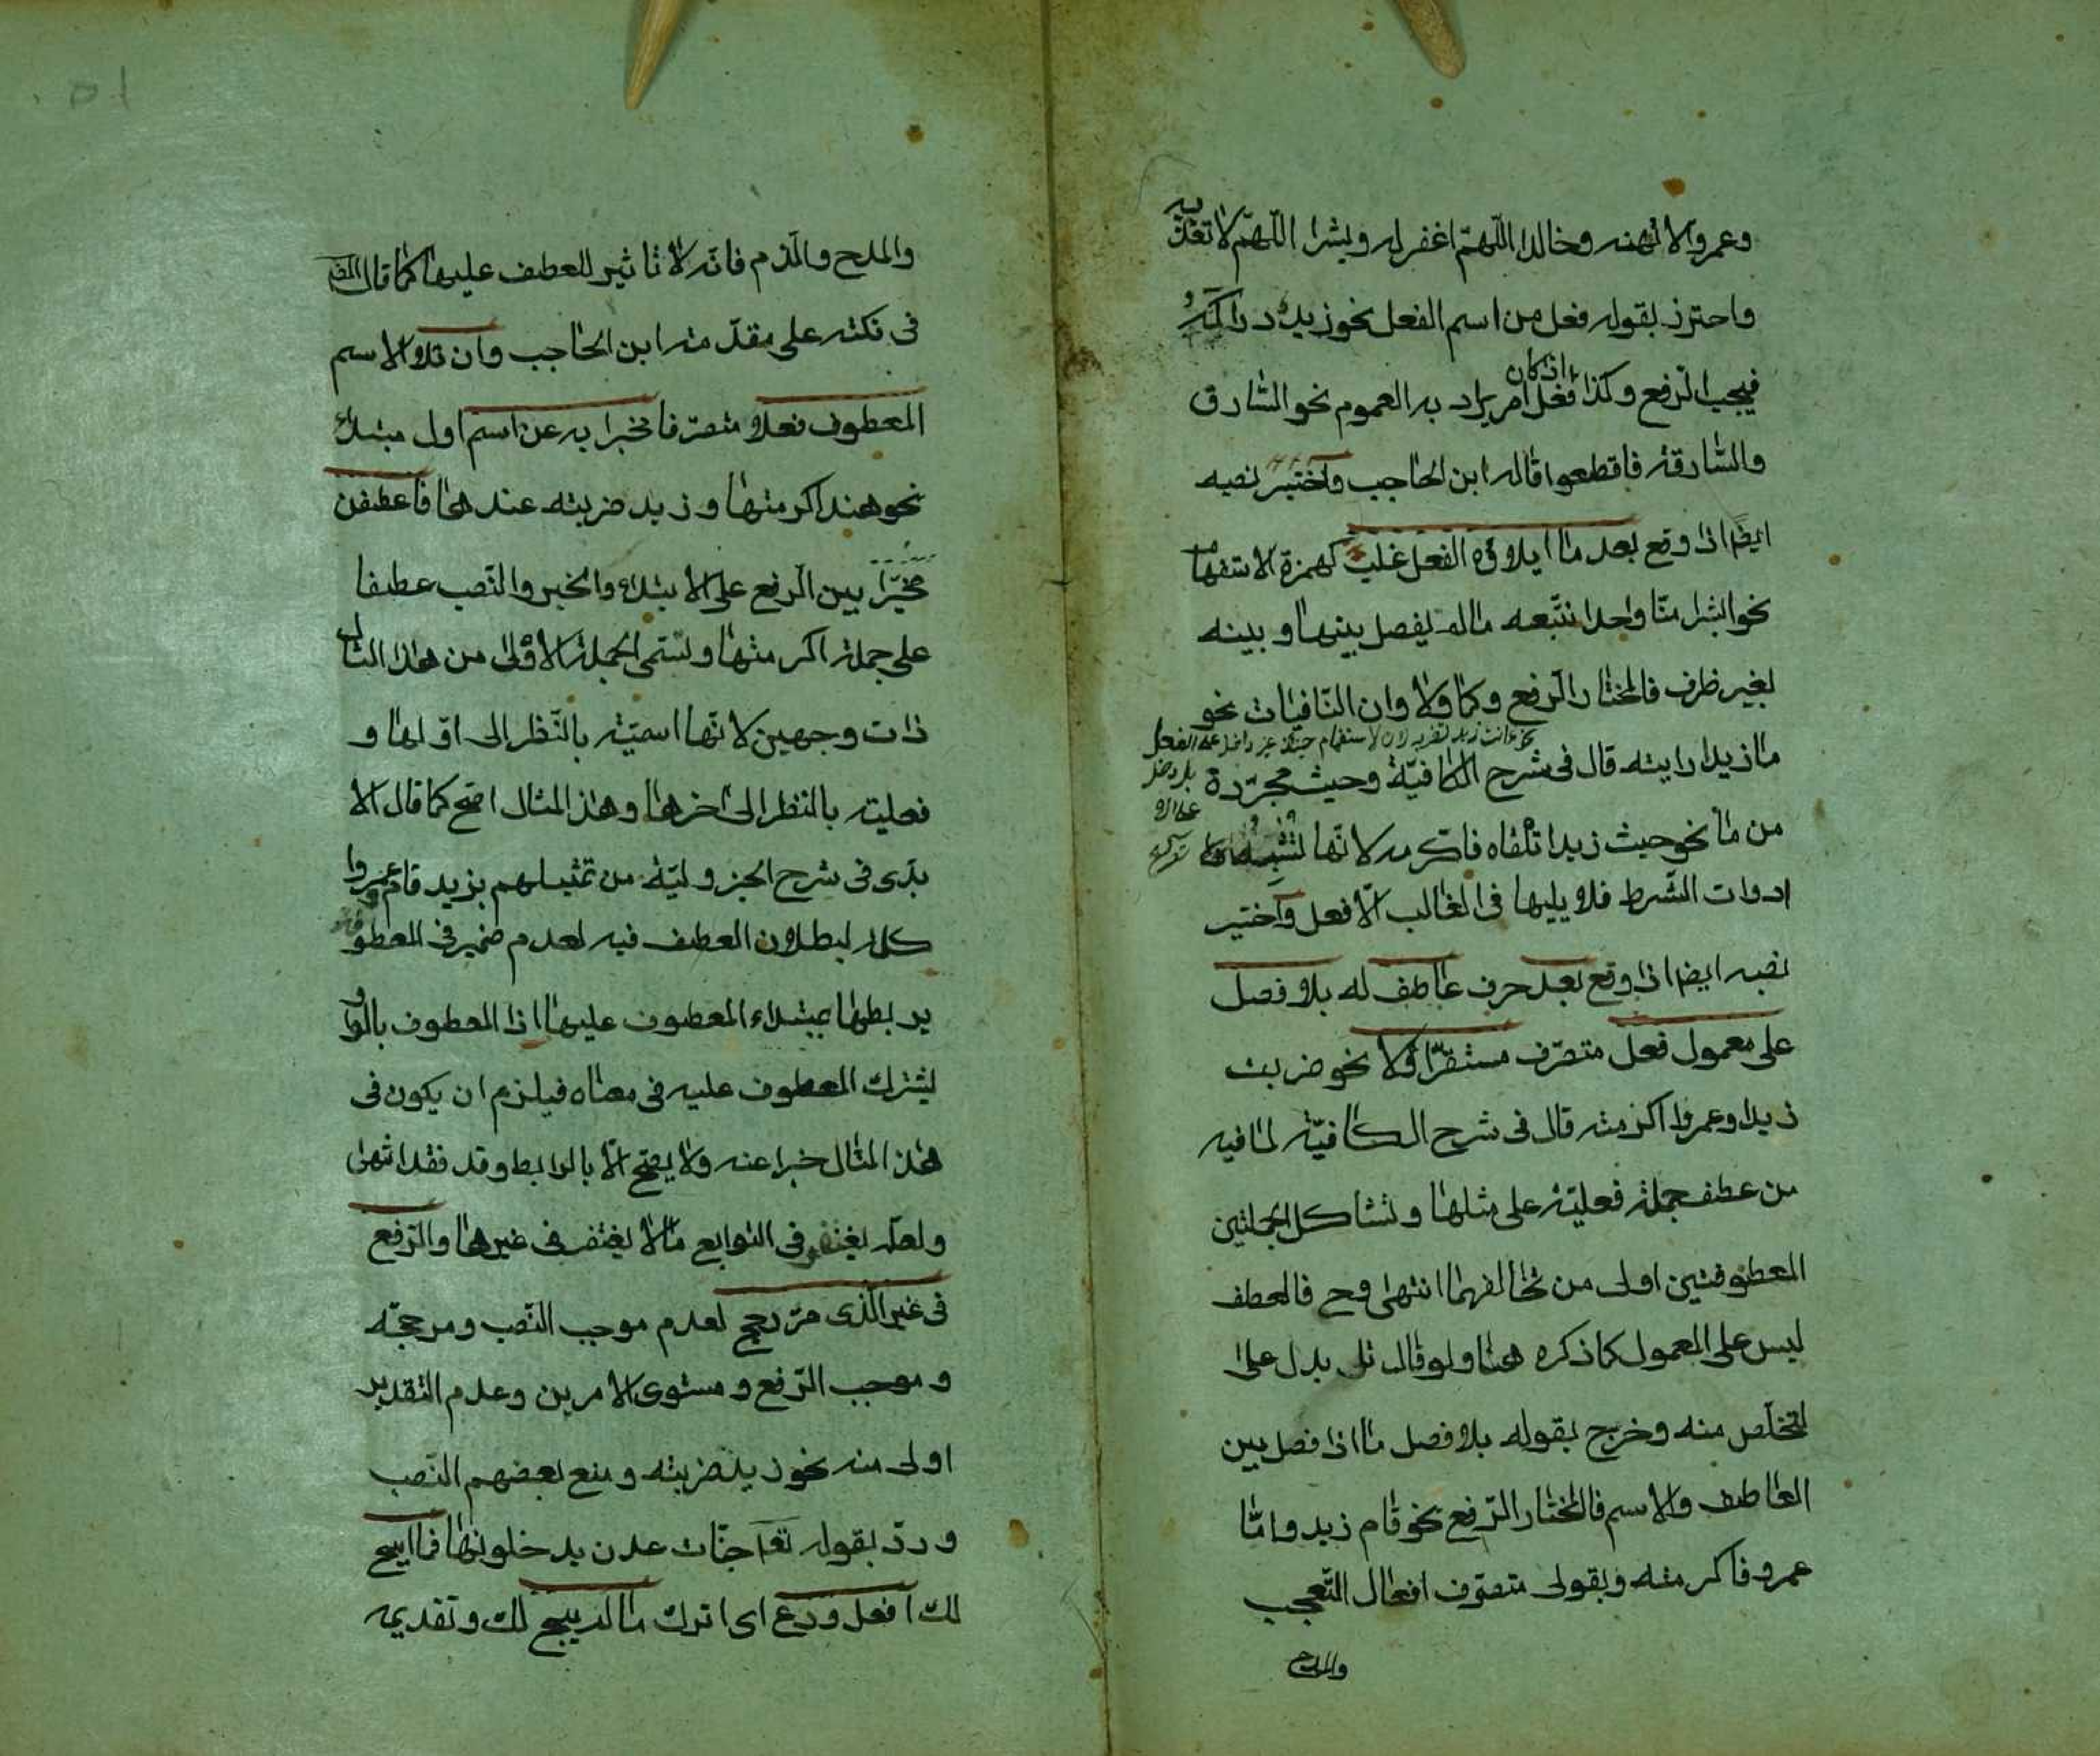 وعمروا لا تهنه وخالدا اللّهمّ اغفر له وبشرا اللّهمّ لا تعذّبه
واحترز بقوله فعل من اسم الفعل نحو زيد دراكه
فيجب الرّفع وكذا اذا كان فعل امر يراد به العموم نحو السّارق
والسّارقة فاقطعوا قاله ابن الحاجب واختير نصبه
ايضا اذا وقع بعد ما ايلاؤه الفعل غلب كهمزة الاستفهام
نحو ابشرا منّا واحدا نتّبعه ما لم يفصل بينها وبينه
بغير ظرف فالمختار الرّفع وكما ولا وان النّافيات نحو
نحو ءانت زيد تضربه لان الاستفهام حينئذ غير داخل على الفعل
بل دخل
على الا
ما زيدا رايته قال في شرح الكافيّة وحيث مجرّدة
من ما نحو حيث زيدا تلقاه فاكرمه لانّها تشبه
ادوات الشّرط فلا يليها في الغالب الّا فعل واختير
نصبه ايضا اذا وقع بعد حرف عاطف له بلا فصل
على معمول فعل متصرّف مستقرّ اوّلا نحو ضربت
زيدا وعمروا اكرمته قال في شرح الكافيّة لما فيه
من عطف جملة فعليّة على مثلها وتشاكل الجملتين
المعطوفتين اولى من تخالفهما انتهى وح فالعطف
ليس على المعمول كما ذكره هنا ولو قال تلى بدل على
لتخلّص منه وخرج بقوله بلا فصل ما اذا فصل بين
العاطف والاسم فالمختار الرّفع نحو قام زيد وامّا
عمرو فاكرمته وبقولى متصرّف افعال التّعجب
والمدح
والمدح والذّم فانّه لا تاثير للعطف عليها كما قال المص
في نكته على مقدّمة ابن الحاجب وان تلا الاسم
المعطوف فعلا متصرّفا مخبرا به عن اسم اول مبتداء
نحو هند اكرمتها وزيد ضربته عندها فاعطفن
مخيّرا بين الرفع على الابتداء والخبر والنّصب عطفا
على جملة اكرمتها وتسمّى الجملة الاولى من هذا المثال
ذات وجهين لانّها اسميّة بالنّظر الى اوّلها و
فعلية بالنّظر الى اخرها وهذا المثال اصح كما قال الا
بذى في شرح الجزوليّة من تمثيلهم بزيد قام وعمروا
كلمته لبطلان العطف فيه لعدم ضمير في المعطوفة
يربطها بمبتداء المعطوف عليها اذا المعطوف بالواو
يشترك المعطوف عليه في معناه فيلزم ان يكون في
هذا المثال خبرا عنه ولا يصحّ الّا بالرابط وقد فقد انتهى
ولعلّه يغتفر في التوابع ما لا يغتفر في غيرها والرّفع
في غير الّذى مرّ رجح لعدم موجب النّصب ومرجحّه
وموجب الرّفع ومستوى الامرين وعدم التقدير
اولى منه نحو زيد ضربته ومنع بعضهم النّصب
وردّ بقوله تعا جنّات عدن يدخلونها فما ابيح
لك افعل ودع اى اترك ما لم يبح لك وتقديمه